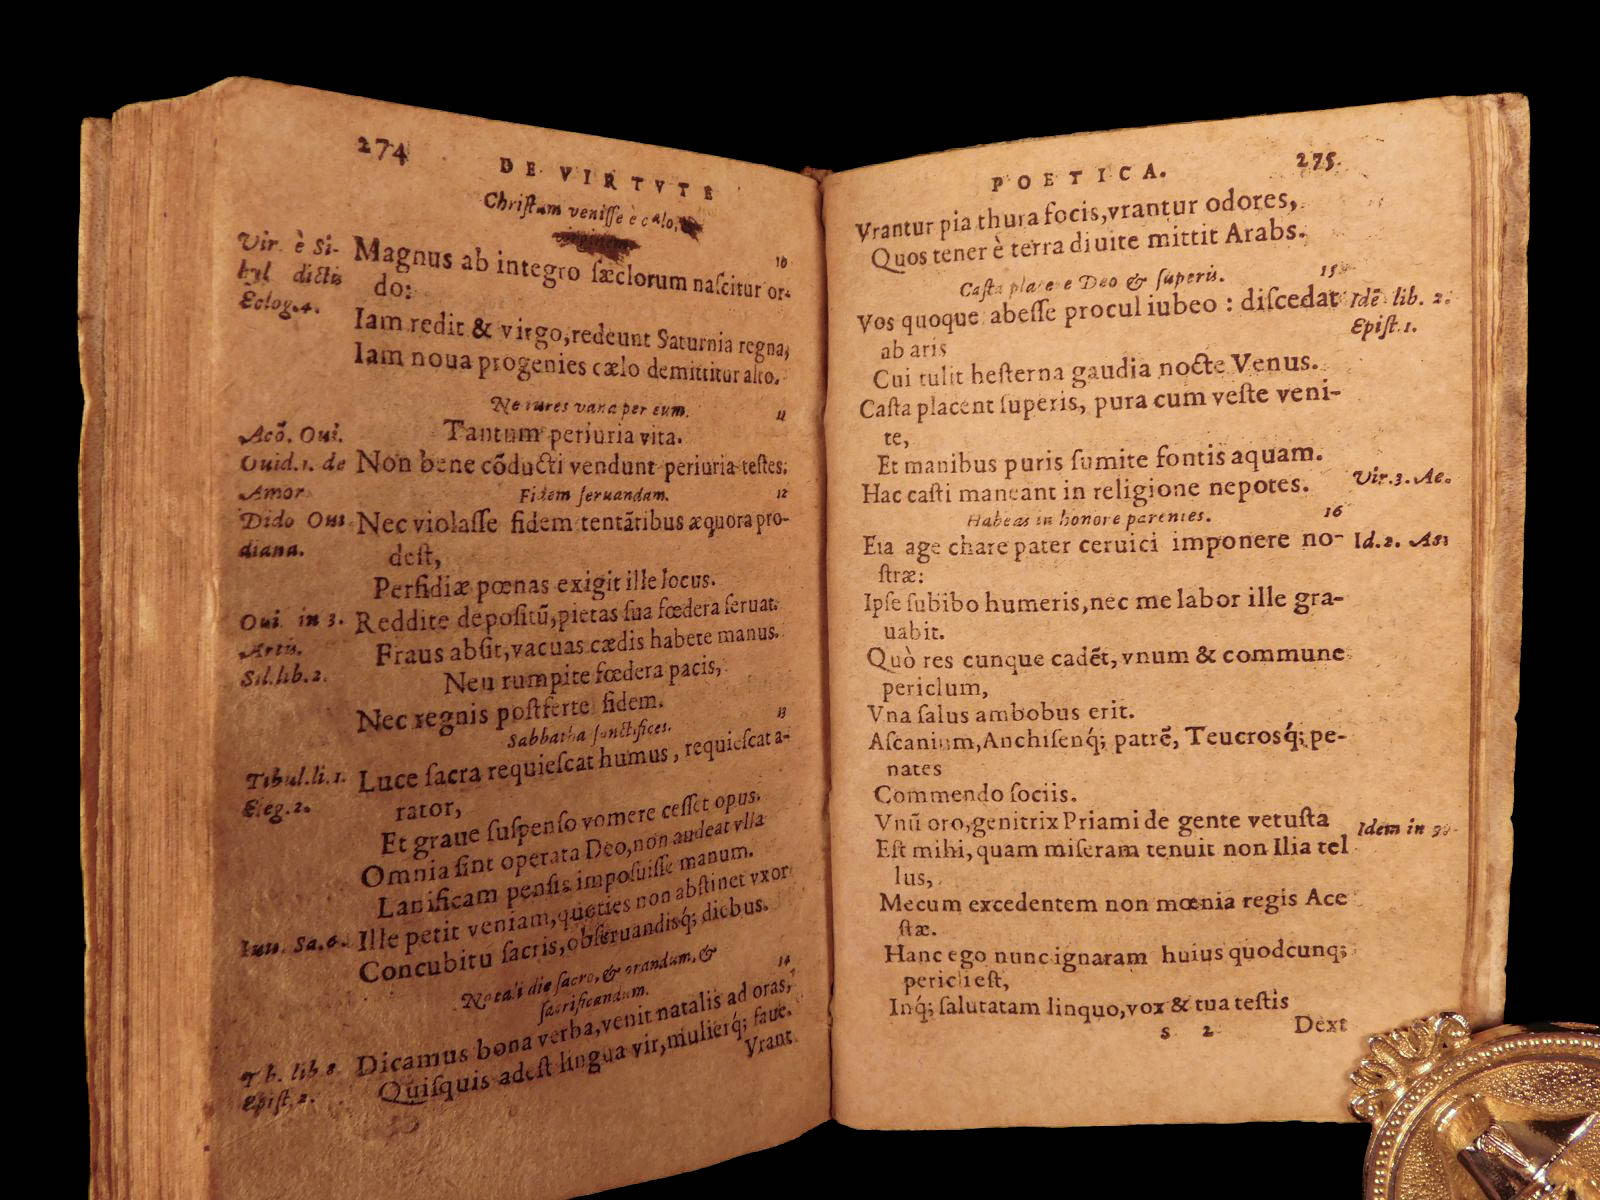 274
DE VIRTVTE
Chriſtum veniſſe è cælo,
Vir. è Si-
byl dictis
Eclog.4.
10
Magnus ab integro ſæclorum naſcitur or-
do:
Iam redit & virgo, redeunt Saturnia regna,
Iam noua progenies cælo demittitur alto.
Ne iures vana per eum. 11
Acõ. Oui.
Tantum periuria vita.
Ouid.1. de
Amor
Non bene cõducti vendunt periuria teſtes;
Fidem ſeruandam. 12
Dido Oui
diana.
Nec violaſſe fidem tentãtibus æquora pro-
deſt,
Perfidiæ pœnas exigit ille locus.
Oui in 3.
Artis.
Reddite depoſitũ, pietas ſua fœdera ſeruat.
Fraus abſit, vacuas cædis habete manus.
Sil.lib.2.
Neu rumpite fœdera pacis,
Nec regnis poſtferte fidem.
Sabbatha ſanctifices. 13
Tibul.li.1.
Eleg.2.
Luce ſacra requieſcat humus, requieſcat a-
rator,
Et graue ſuſpenſo vomere ceſſet opus.
Omnia ſint operata Deo, non audeat vlla
Lanificam penſis impoſuiſſe manum.
Iuu. Sa.6.
Ille petit veniam, quoties non abſtinet vxor
Concubitu ſacris, obſeruandisq́; diebus.
Natali die ſacro, & orandum, &
ſacrificandum. 14
Tb. lib 8.
Epiſt. 2.
Dicamus bona verba, venit natalis ad oras,
Quiſquis adeſt lingua vir, mulierq́; faue.
Vrant
POETICA.
275.
Vrantur pia thura focis, vrantur odores,
Quos tener è terra diuite mittit Arabs.
Caſta placere Deo & ſuperis. 15
Vos quoque abeſſe procul iubeo : diſcedat
ab aris
Idẽ lib. 2.
Epiſt.1.
Cui tulit heſterna gaudia nocte Venus.
Caſta placent ſuperis, pura cum veſte veni-
te,
Et manibus puris ſumite fontis aquam.
Hac caſti maneant in religione nepotes.
Vir.3. Ae.
Habeas in honore parentes. 16
Eia age chare pater ceruici imponere no-
ſtræ:
Id.2. Ae:
Ipſe ſubibo humeris, nec me labor ille gra-
uabit.
Quò res cunque cadẽt, vnum & commune
periclum,
Vna ſalus ambobus erit.
Aſcanium, Anchiſenq́; patrẽ, Teucrosq́; pe-
nates
Commendo ſociis.
Vnũ oro, genitrix Priami de gente vetuſta
Idem in 9.
Eſt mihi, quam miſeram tenuit non Ilia tel
lus,
Mecum excedentem non mœnia regis Ace
ſtæ.
Hanc ego nunc ignaram huius quodcunq;
pericli eſt,
Inq́; ſalutatam linquo, vox & tua teſtis
s 2
Dext